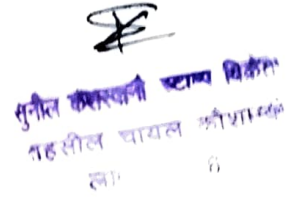 सुनील केसरवानी स्टाम्प विक्रेता
तहसील चायल कौशाम्बी
ला